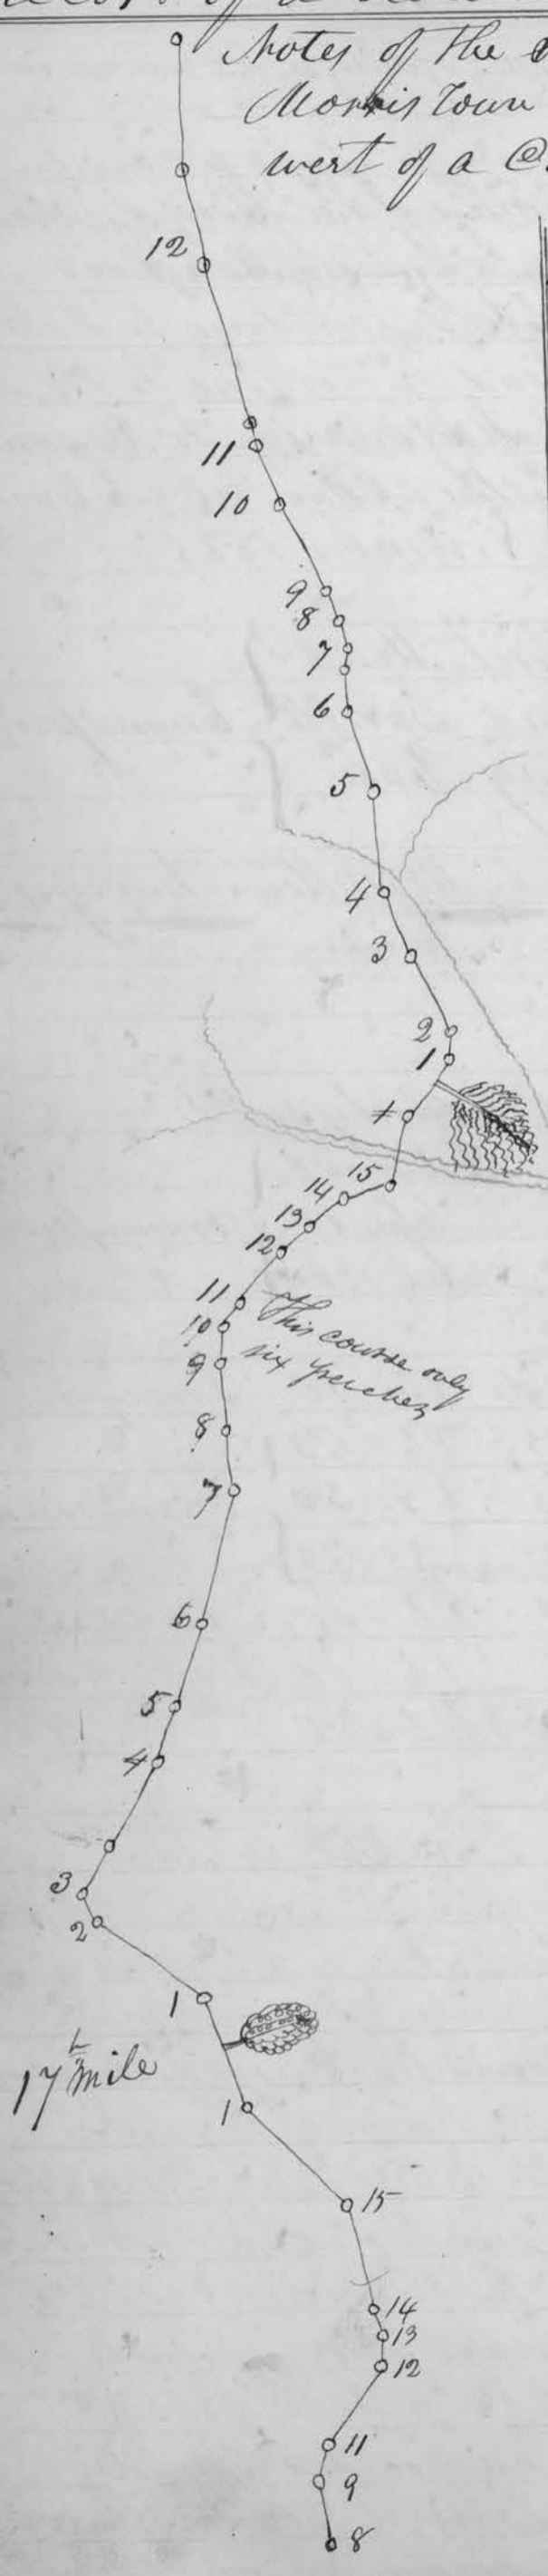 Notes of the
Morris Town
west of a @
12
11
10
9
8
7
6
5
4
3
2
1
1
15
14
13
12
11
10
This course only
six perches
9
8
7
6
5
4
3
2
1
17th mile
1
15
14
13
12
11
9
8